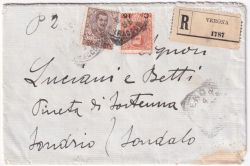 P 2
R
VERONA
1787
Signori
Luciani e Betti
Pineta di Sortenna
Sondrio Sondalo